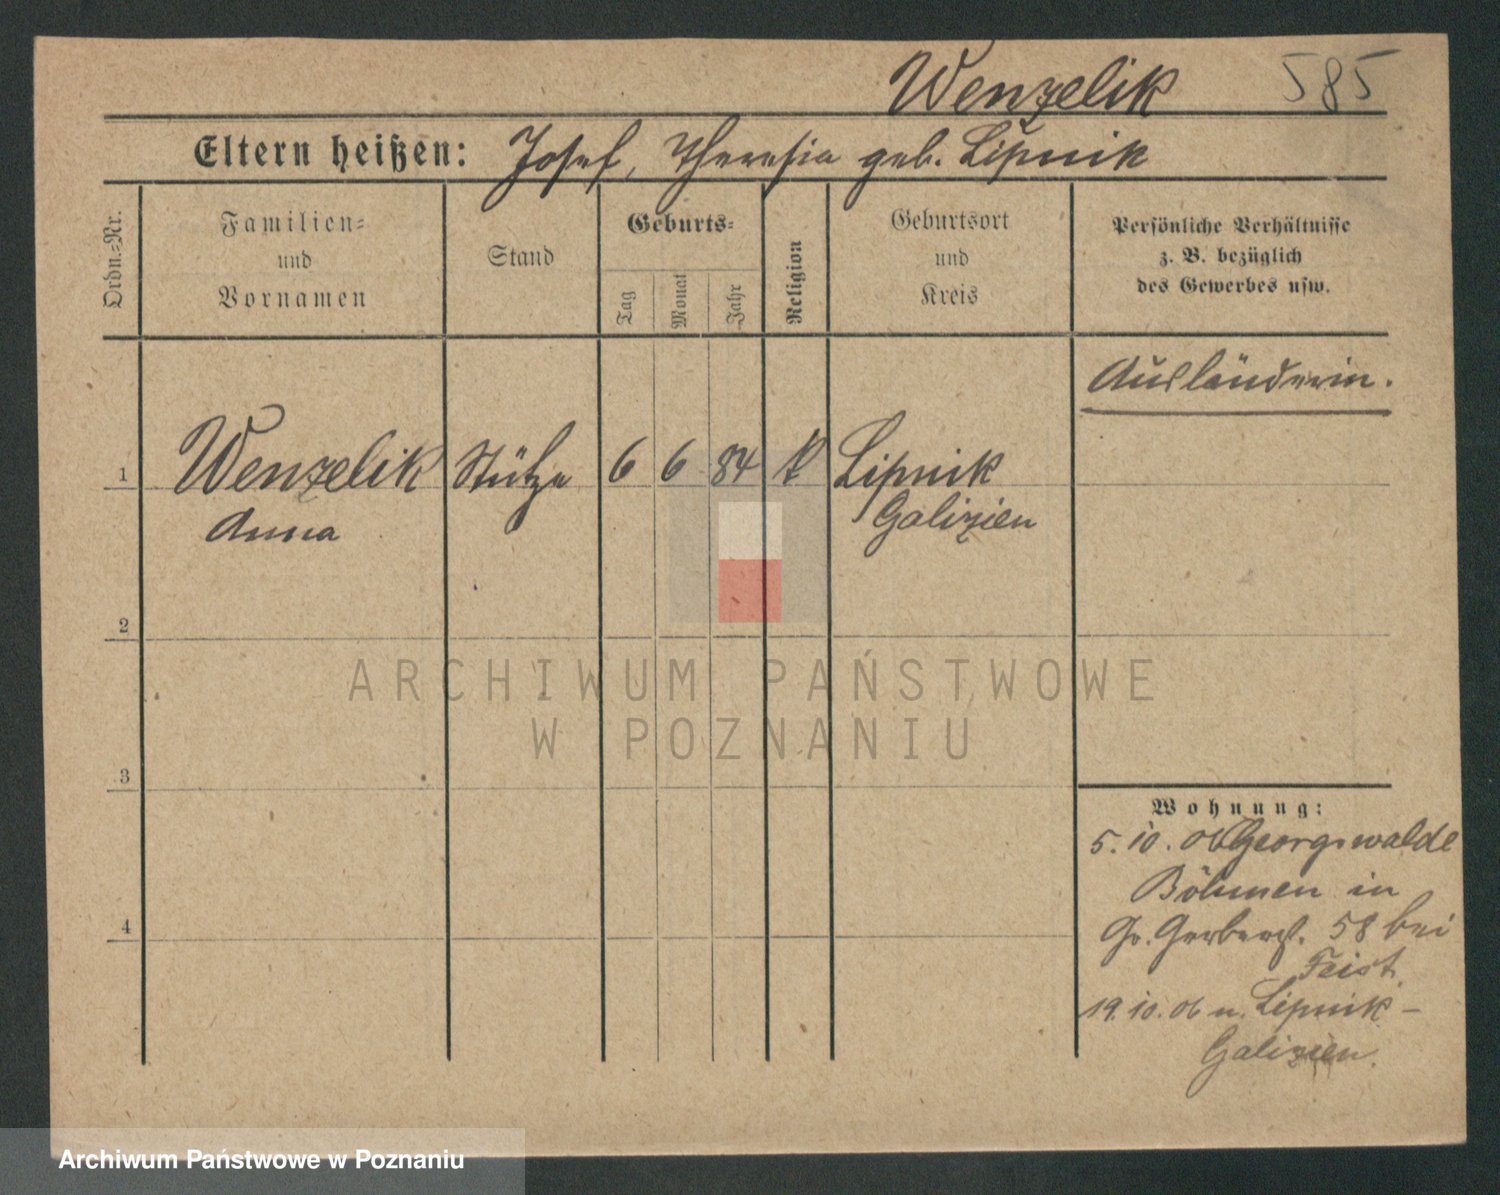 Wenzelik 585
Eltern heißen: Josef, Theresia geb. Lipnik
Ordn.-Nr.
Familien-
und
Vornamen
Stand
Geburts-
Tag
Monat
Jahr
Religion
Geburtsort
und
Kreis
Persönliche Verhältnisse
z. B. bezüglich
des Gewerbes usw.
Ausländerin.
1 Wenzelik Stütze 6 6 84 k Lipnik
Anna Galizien
2
3
4
Wohnung:
5. 10. 06 Georgswalde
Böhmen in
Gr. Gerberst. 58 bei
Feist.
19. 10. 06 n. Lipnik -
Galizien.
ARCHIWUM PAŃSTWOWE
W POZNANIU
Archiwum Państwowe w Poznaniu